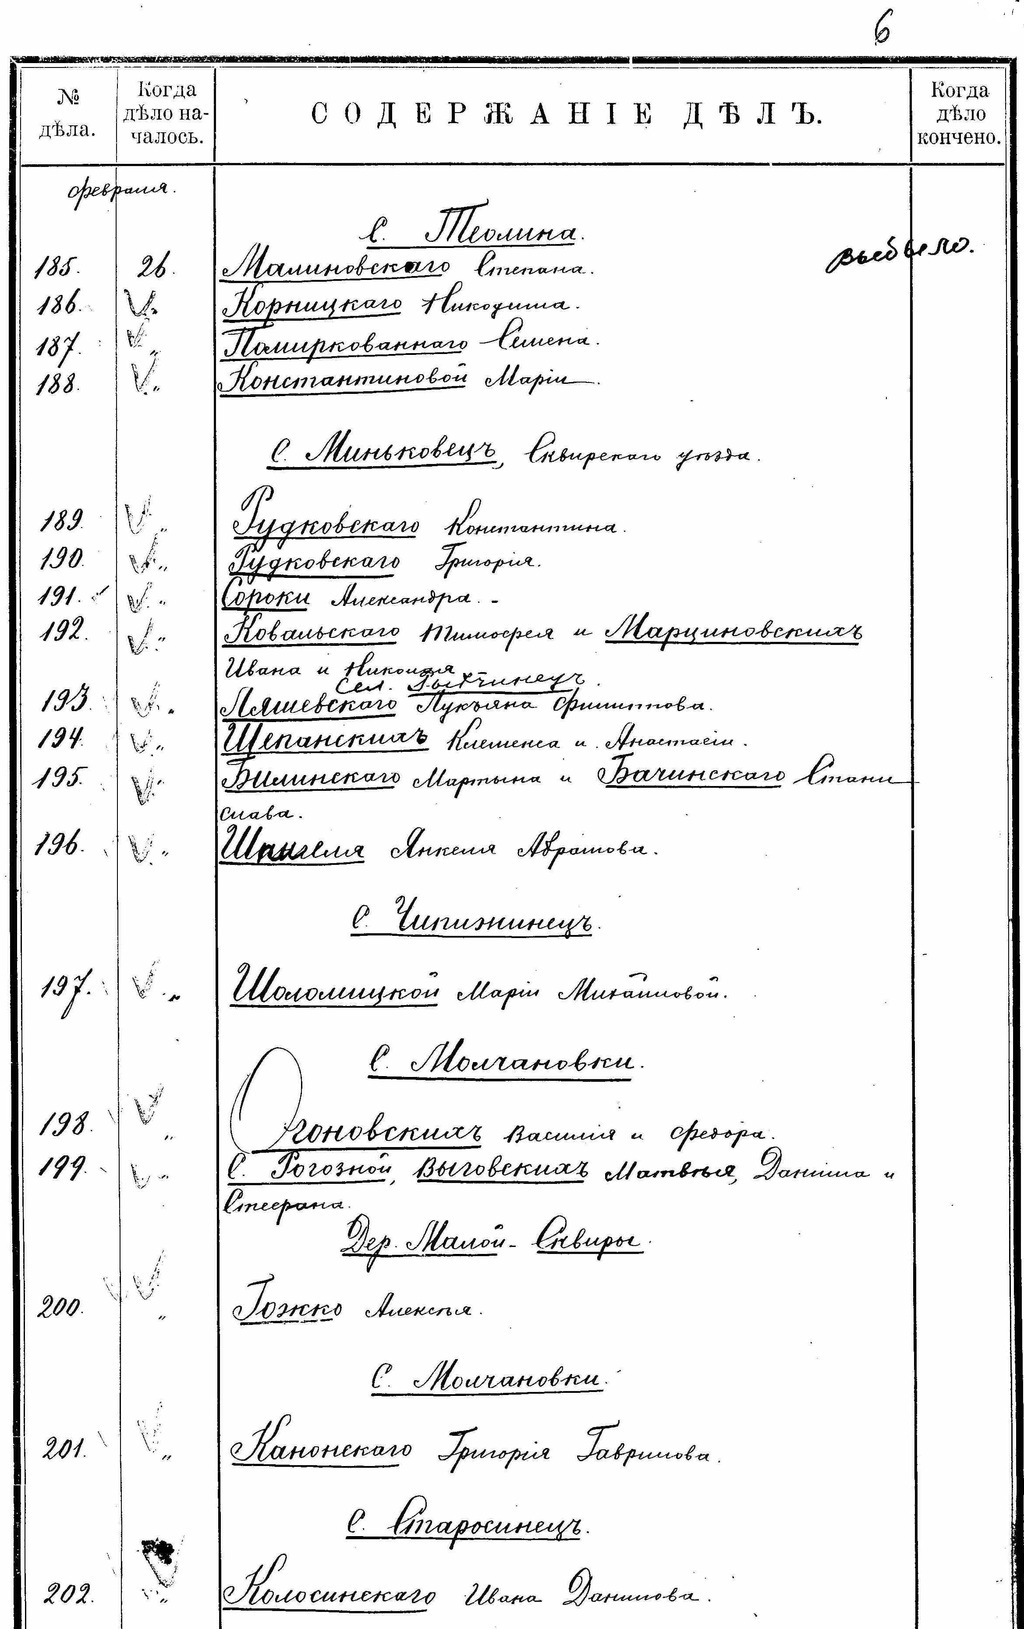 6
№ дѣла.
Когда дѣло началось.
СОДЕРЖАНІЕ ДѢЛЪ.
Когда дѣло кончено.
февраля.
С. Теолина.
185. 26. Малиновскаго Степана.
186. Корницкаго Никодима.
187. " Помиркованнаго Семена.
188. " Константиновой Маріи.
С. Миньковецъ, Сквирскаго уѣзда.
189. " Рудковскаго Константина.
190. " Рудковскаго Григорія.
191. " Сороки Александра. -
192. " Ковальскаго Тимофея и Марциновскихъ
Ивана и Николая
Сел.
193. " Ляшевскаго Лукьяна Филиппова.
194. " Щепанскихъ Клеменса и Анастасіи.
195. " Билинскаго Мартына и Бачинскаго Стани
слава.
196. " Янкеля Абрамова.
С. Чипижинецъ.
197. " Шоломицкой Маріи Михайловой.
С. Молчановки.
198. " Огоновскихъ Василія и Федора.
199. " С. Рогозной, Выговскихъ Матвѣя, Даніила и
Стефана.
Дер. Малой-Сквиры.
200. " Гожко Алексѣя.
С. Молчановки.
201. " Канонскаго Григорія Гаврилова.
С. Старосинецъ.
202. " Колосинскаго Ивана Данилова.